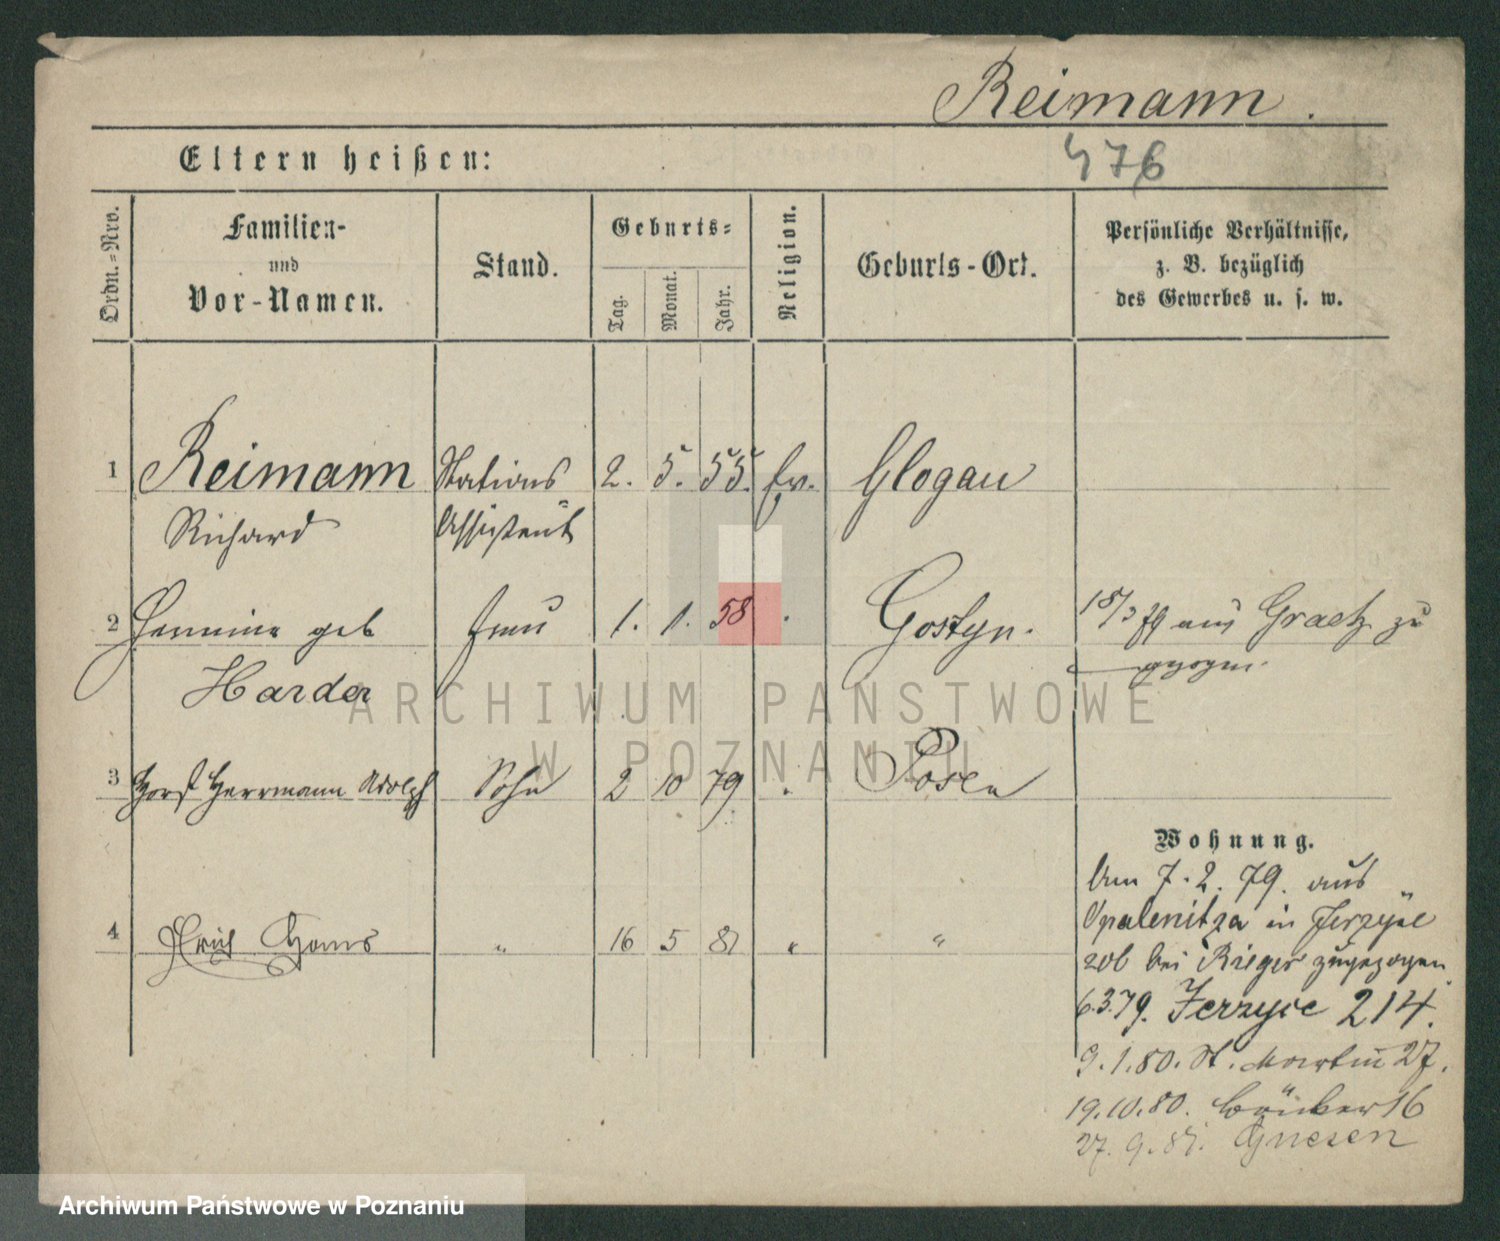 Reimann.
Eltern heißen:
476
Ordn.-Nro.
Familien-
und
Vor-Namen.
Stand.
Geburts-
Tag.
Monat.
Jahr.
Religion.
Geburts-Ort.
Persönliche Verhältnisse,
z. B. bezüglich
des Gewerbes u. s. w.
1 Reimann Stations 2. 5. 55. Ev. Glogau
Richard Assistent
2 Hermine geb Frau 1. 1. 58 . Gostyn. 18/3 79 aus Graetz zu
Harder gezogen.
3 Horst Herrmann Adolph Sohn 2 10 79 . Posen
4 Erich Hans " 16 5 81 " "
Wohnung.
Am 7.2.79. aus
Opalenitza in Jerzyce
20b bei Rieger zugezogen
6.3.79. Jerzyce 214.
9.1.80. St. Martin 27.
19.10.80. Bäcker 16
27.9.81. Gnesen
ARCHIWUM PAŃSTWOWE
W POZNANIU
Archiwum Państwowe w Poznaniu